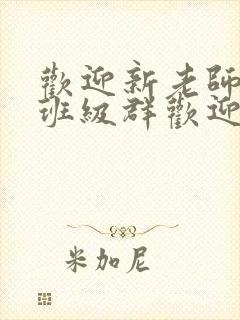 歡迎新老師
班級群歡迎
米加尼